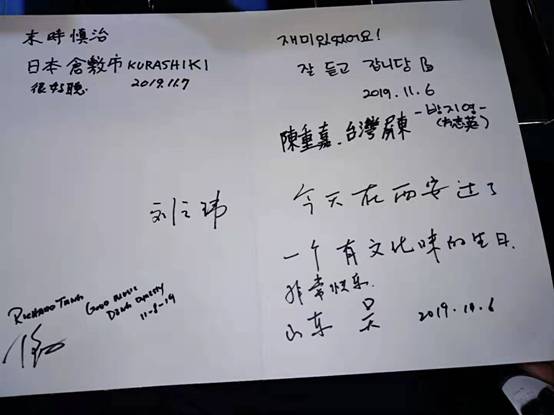 木時慎治
日本倉敷市 KURASHIKI
很好聴. 2019.11.7
刘立玮
RICHARD TANG
GOOD MUSIC
DANG DYNASTY
11-8-19
재미있었어요!
잘 듣고 갑니당
2019.11.6
-방지영-
(方志英)
陳重嘉.台灣屏東
今天在西安过了
一个有文化味的生日.
非常快乐.
山东 吴 2019.11.6